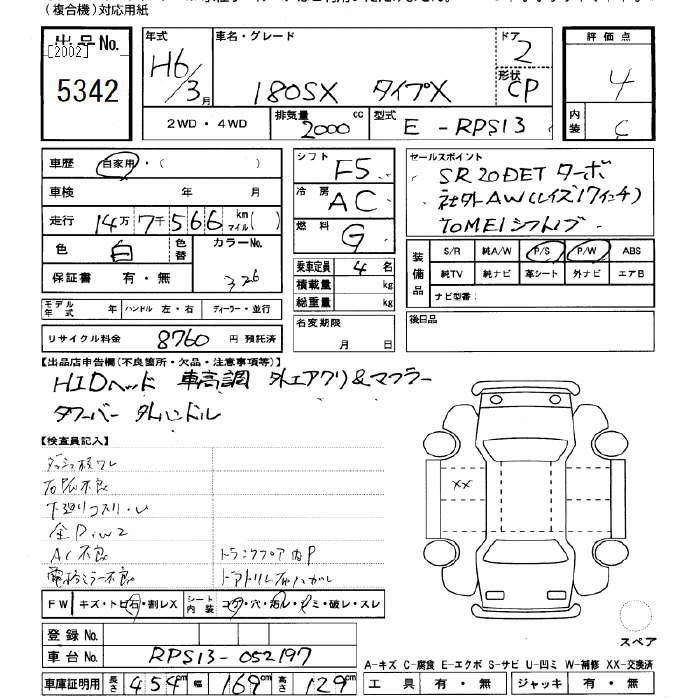 (複合機)対応用紙
出品No.
[2002]
5342
年式
H6/3月
車名・グレード
180SX タイプX
ドア
2
形状
CP
2WD・4WD
排気量
2000 cc
型式
E-RPS13
評価点
4
内装
C
車歴 自家用・( )
車検 年 月
走行 14万7千566 km マイル( )
色 白 色替 カラーNo. 326
保証書 有・無
モデル年式 年 ハンドル 左・右 ディーラー・並行
リサイクル料金 8760 円 預託済
シフト F5
冷房 AC
燃料 G
乗車定員 4 名
積載量 kg
総重量 kg
名変期限
月 日
セールスポイント
SR20DET ターボ
社外AW(レイズ17インチ)
TOMEIシフトノブ
装備品
S/R 純A/W P/S P/W ABS
純TV 純ナビ 革シート 外ナビ エアB
ナビ型番:
後日品
【出品店申告欄(不良箇所・欠品・注意事項等)】
HIDヘッド 車高調 外エアクリ&マフラー
タワーバー 外ハンドル
【検査員記入】
ダッシュ枝ワレ
下廻りコスリ・
AC不良 トランクフロア内P
電格ミラー不良
FW キズ・トビ石・割レX シート内装 コゲ・穴・汚レ・シミ・破レ・スレ
登録No.
車台No. RPS13-052197
車庫証明用 長さ 454cm 幅 169cm 高さ 129cm
XX
スペア
A-キズ C-腐食 E-エクボ S-サビ U-凹ミ W-補修 XX-交換済
工具 有・無 ジャッキ 有・無